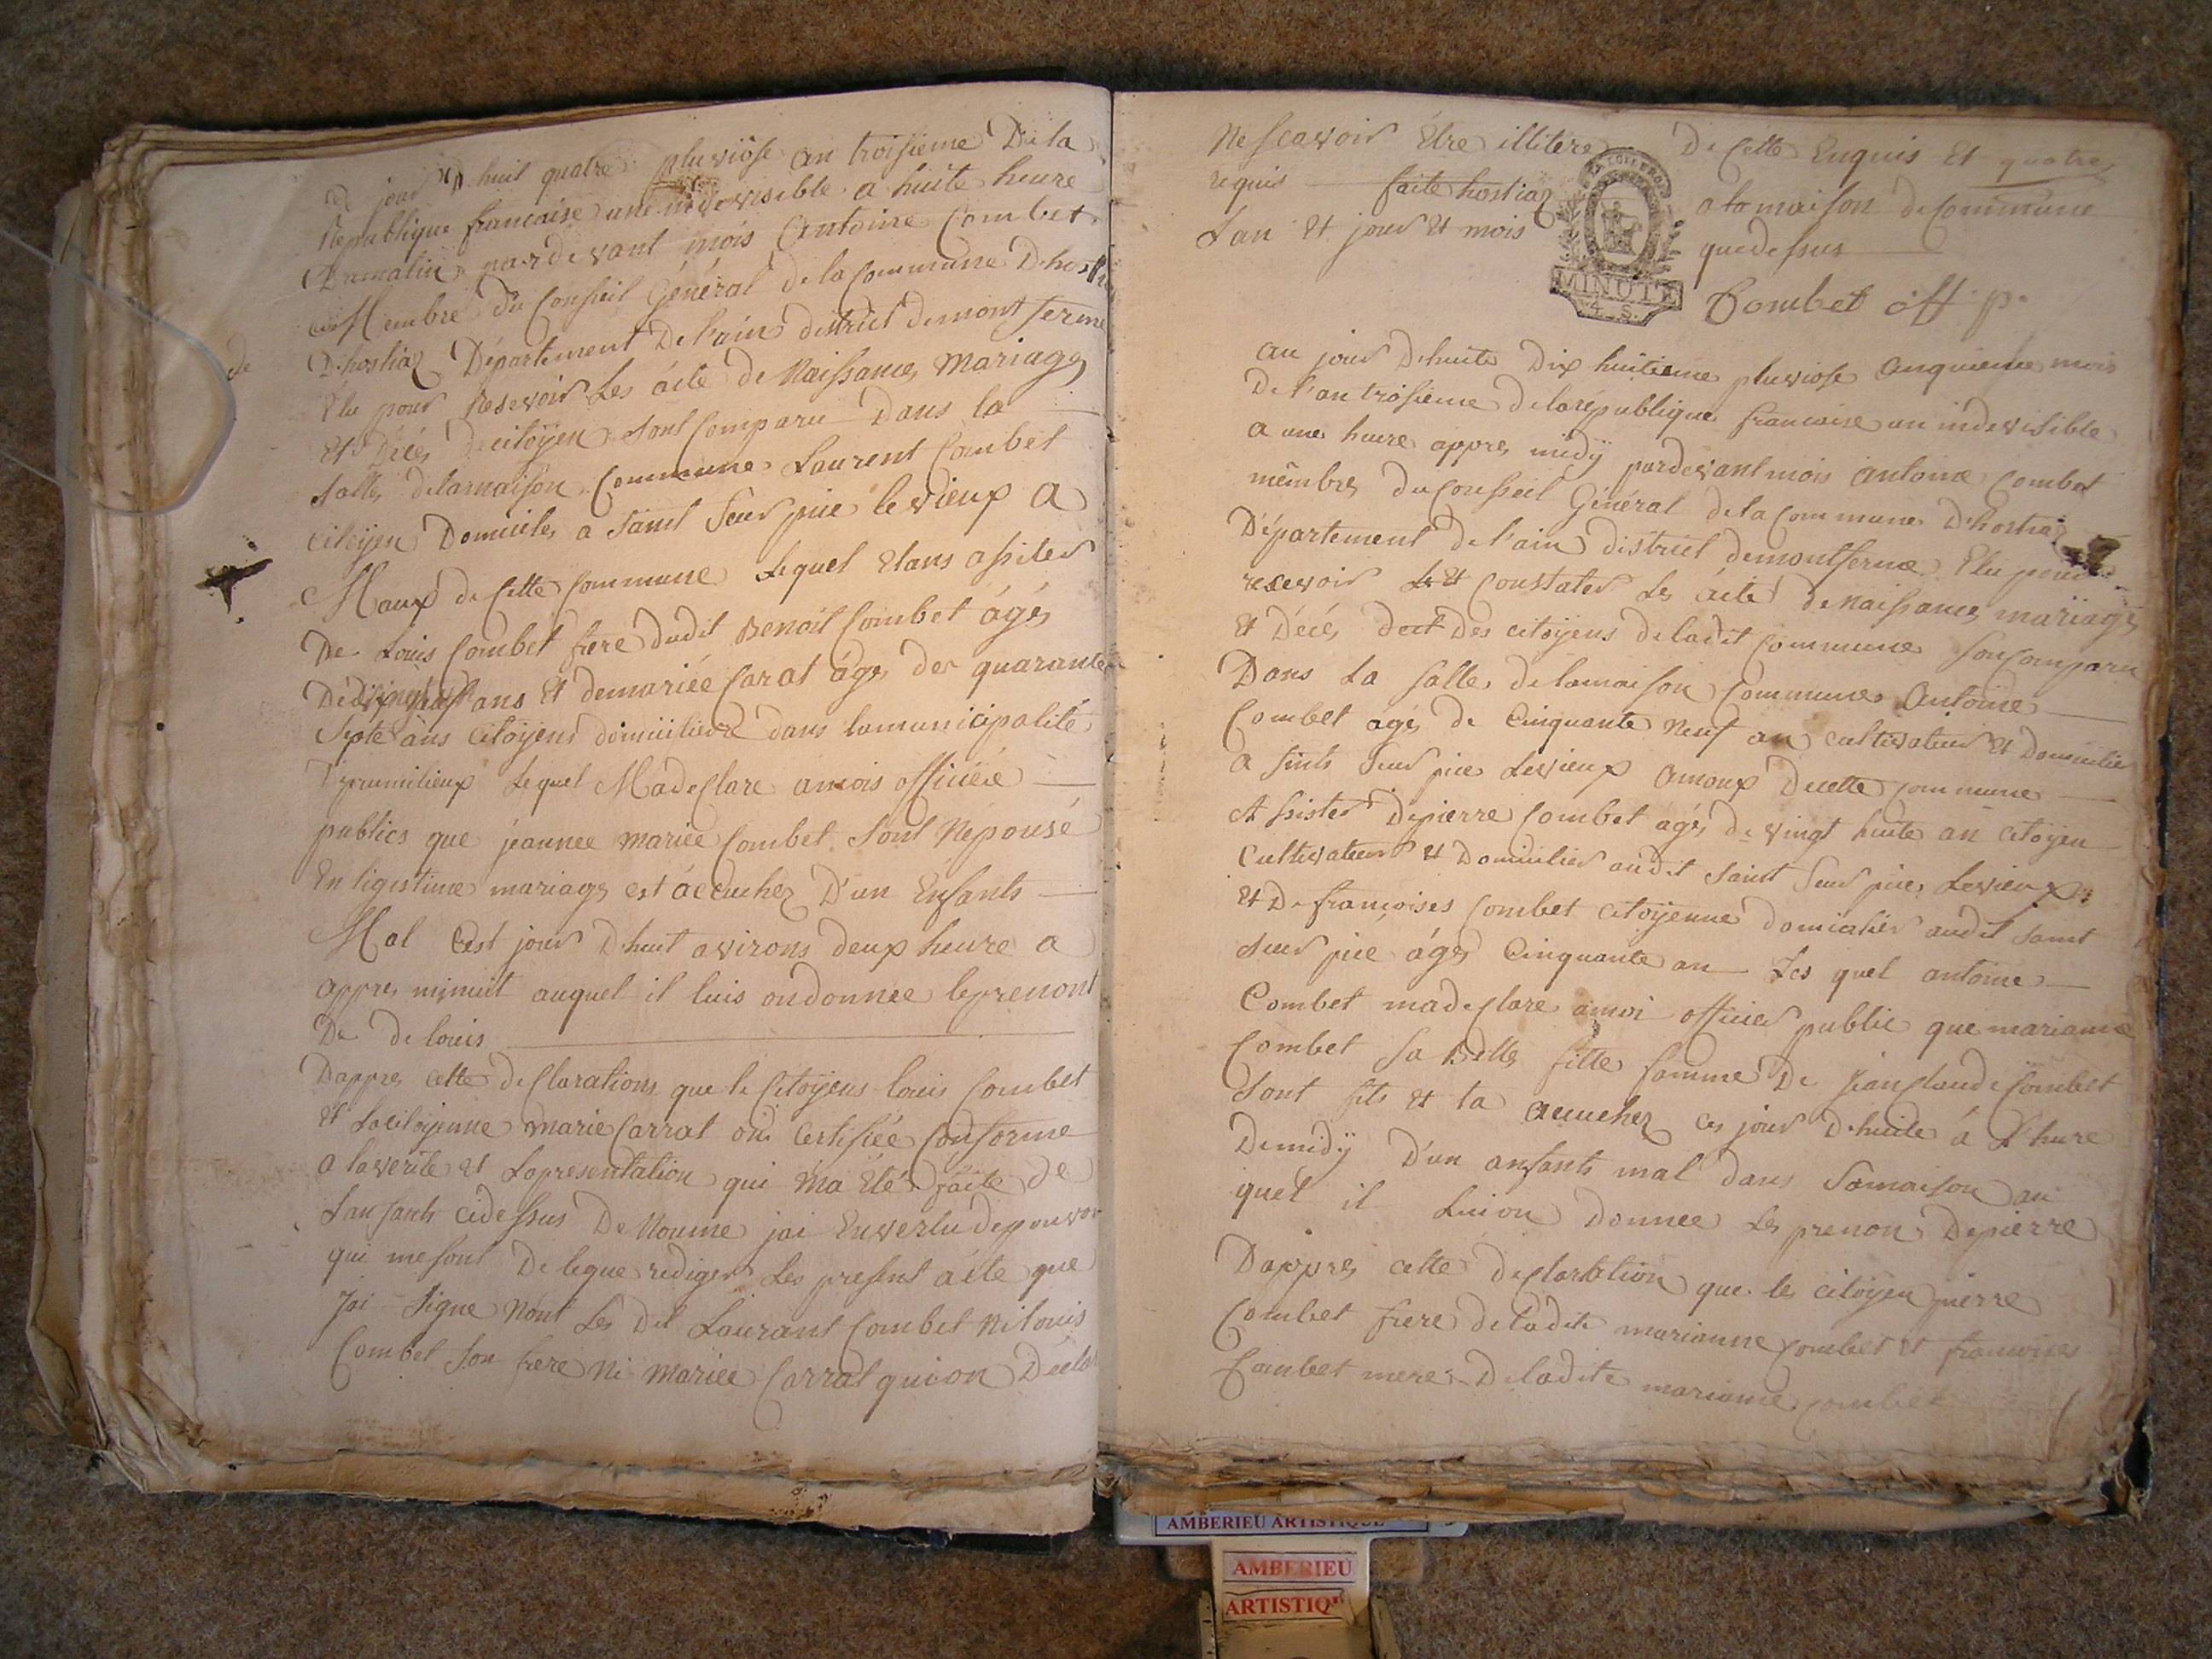 jour D huit quatre pluviôse an troisieme De la
Republique francaise une indevisible a huite heure
Du matin pardevant mois Antoine Combet
Membre Du Conseil Général de la Commune D'hostia
D'hostiaz Département De l'ain district de mont ferme
de
élu pour Resevoir Les acte de Naissance, Mariage
Et Décés de citoÿen sont Comparu Dans la
salle delamaison Commune Laurent Combet
Citoÿen Domicile a saint seur pie le vieux a
Maux de Cette Commune Lequel Etans assiter
De Louis Combet frere dudit Benoît Combet ágé
ans Et demariée Carat áge der quarante
septe ans Citoÿens domiiliere dans lamunicipalité
Lequel Madeclare amois officiée
publics que jeannee mariée Combet sont Nepousé
En ligestime mariage est áccucher D'un Enfants
Mal Cest jour D'huit avirons deux heure a
appres minuit auquel il luis ondonnee leprenont
De de louis
Dappres cette declarations que le Citoÿens louis Combet
Et Lacitoÿenne marie Carrat oni Certifiée Conforme
a laverite et Lapresentation qui ma Eté faite de
Lansants cidessus De Nourne jai Envertu depouvoir
qui mesont De legue rediger Les present áite que
Jai signe Nont Les Dit Laurant Combet Ni louis
Combet son frere Ni Mariée Carrat quion Déclar
Ne scavoir Etre illitere De Cette Enquis Et quatre
requis faite hostiaz a lamaison deCommune
Lan Et jour Et mois que dessus
MINUTE
4. S.
Combet off p.
au jour Dhuite Dix huitieme pluviose Cinquieme mois
De l'an troisieme delarépublique francaise un indevisible
a une heure appres midÿ pardevant mois antoine Combet
membre du Conseil Général dela Commune D'hostiaz
Département de l'ain district demontferme Elu pour
resevoir Le Et Constater Les áite de Naissance, mariage
Et Décés deit Des citoÿens deladit Commune son Comparu
Dans La salle, delamaison Commune, Antoine
Combet agé de Cinquante Neuf an cultivateur Et Domicilie
a sints seur pie Levieux amoux decette commune
Assister Depierre Combet agé de vingt huite an citoÿen
Cultivateur Et Domicilier audit saint seur pie, Levieux
Et De françoises Combet citoÿenne domicilier audit saint
seur pié áge Cinquante an Les quel antoine
Combet madeclare amoi officier public que marianne
Combet sa Belle fille famme De jeanclaude Combet
sont fils Et la accucher ces jour D'huite á L'hure
Demidÿ D'un anfants mal dans Samaison au
quel il Luion Donnee Les prenon Depierre
Dappres cette declarlation que les citoÿen pierre
Combet frere deladite marianne Combet Et francoises
Combet mere Deladite marianne Combet
AMBERIEU ARTISTIQUE
AMBERIEU
ARTISTIQ